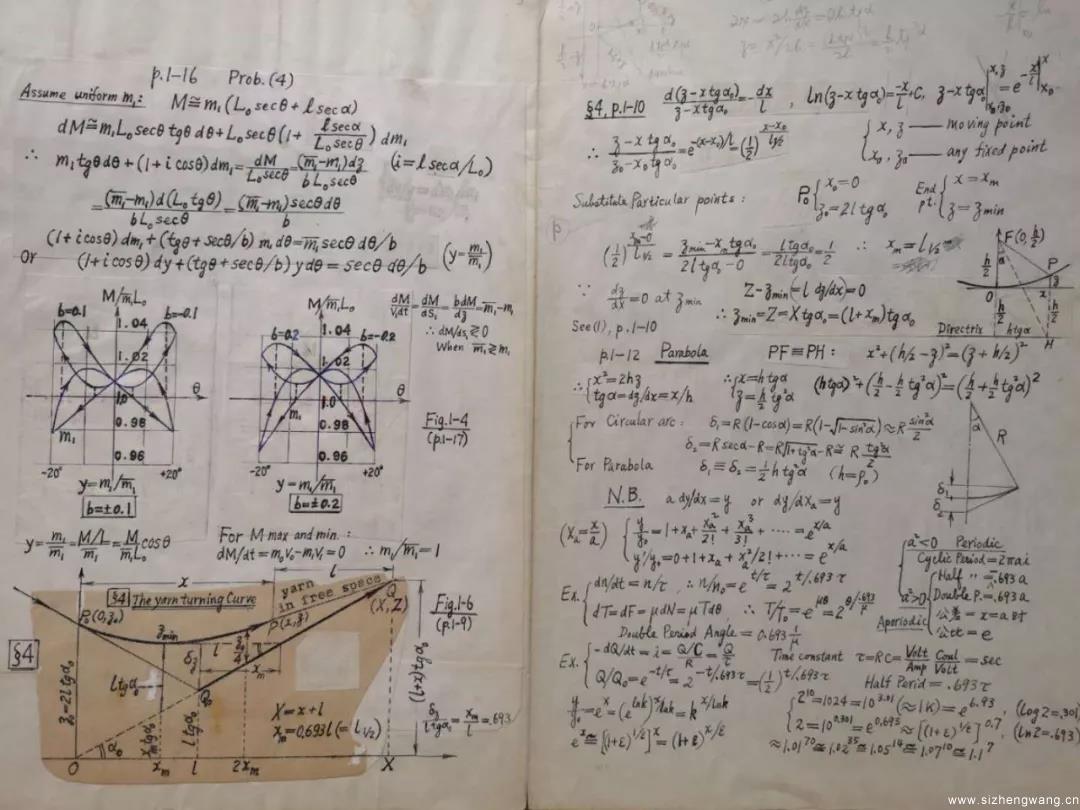 p.1-16 Prob.(4)
Assume uniform m₁: M≅m₁(L₀secθ+lsecα)
dM≅m₁L₀secθ tgθ dθ+L₀secθ(1+ lsecα/L₀secθ) dm₁
∴ m₁tgθdθ+(1+i cosθ)dm₁=dM/L₀secθ=(m̅₁-m₁)dʒ/bL₀secθ (i=lsecα/L₀)
=(m̅₁-m₁)d(L₀tgθ)/bL₀secθ=(m̅₁-m₁)secθdθ/b
(1+i cosθ)dm₁+(tgθ+secθ/b) m₁dθ=m̅₁secθ dθ/b
Or (1+i cosθ)dy+(tgθ+secθ/b) ydθ=secθ dθ/b (y=m₁/m̅₁)
M/m̅₁L₀
b=0.1
b=-0.1
1.04
1.02
1.0
0.98
0.96
θ
m₁
-20° +20°
y=m₁/m̅₁
b=±0.1
M/m̅₁L₀
b=0.2
b=-0.2
1.04
1.02
1.0
0.98
0.96
θ
m₁
-20° +20°
y=m₁/m̅₁
b=±0.2
dM/V₁dt=dM/dS₁=bdM/dʒ=m̅₁-m₁
∴dM/ds₁≷0
When m̅₁≷m₁
Fig.1-4
(p.1-17)
y=m₁/m̅₁=M/L/m̅₁=M/m̅₁L₀ cosθ
For M max and min.:
dM/dt=m₀V₀-m₁V₁=0 ∴m₁/m̅₁=1
§4 The yarn turning Curve
yarn in free space
x
l
P₀(0,ʒ₀)
P(x,ʒ)
Q
(X,Z)
Fig.1-6
(p.1-9)
§4
ʒmin
l
δʒ
xm
ʒ₀=2ltgα₀
ltgα₀
Q₀
xmtgα₀
ltgα₀
(l+x)tgα₀
X=x+l
xm=0.693l(=l₁/₂)
δʒ/ltgα₀=xm/l=.693
α₀
O xm l 2xm X
§4, p.1-10 d(ʒ-xtgα₀)/ʒ-xtgα₀=-dx/l, ln(ʒ-xtgα₀)=-x/l+C, ʒ-xtgα₀|x,ʒ x₀,ʒ₀=e^-x/l|x x₀
∴ ʒ-xtgα₀/ʒ₀-x₀tgα₀=e^-(x-x₀)/l=(1/2)^(x-x₀)/l₁/₂
x, ʒ — moving point
x₀, ʒ₀ — any fixed point
Substitute Particular points: P₀ {x₀=0 ʒ₀=2ltgα₀ End pt. {x=xm ʒ=ʒmin
(1/2)^(xm-0)/l₁/₂=ʒmin-xmtgα₀/2ltgα₀-0=ltgα₀/2ltgα₀=1/2 ∴ xm=l₁/₂
∵ dʒ/dx=0 at ʒmin Z-ʒmin(=l dʒ/dx)=0
See(1), p.1-10 ∴ʒmin=Z=Xtgα₀=(l+xm)tgα₀
F(0,h/2)
α
P
ʒ
h/2
O
x
h/2
h/2
Directrix htgα
H
p.1-12 Parabola PF≡PH: x²+(h/2-ʒ)²=(ʒ+h/2)²
∴{x²=2hʒ tgα=dʒ/dx=x/h ∴{x=htgα ʒ=h/2 tg²α (htgα)²+(h/2-h/2tg²α)²=(h/2+h/2tg²α)²
For Circular arc: δ₁=R(1-cosα)=R(1-√1-sin²α)≈R sin²α/2
δ₂=Rsecα-R=R√1+tg²α-R≅R tg²α/2
For Parabola δ₁≡δ₂=1/2 htg²α (h=ρ₀)
α
R
δ₁
δ₂
N.B. a dy/dx=y or dy/dxₐ=y
(xₐ=x/a) {y/y₀=1+xₐ+xₐ²/2!+xₐ³/3!+·····=e^x/a
y'/y₀=0+1+xₐ+xₐ²/2!+·····=e^x/a
Ex. {dn/dt=n/τ ∴n/n₀=e^t/τ=2^t/.693τ
dT=dF=μdN=μTdθ ∴T/T₀=e^μθ=2^θ/.693/μ
Double Period Angle=0.693 1/μ
a²<0 Periodic
Cyclic Period=2πai
a²>0 Aperiodic
Half 〃=.693a
Double P.=.693a
公差=x=a时
公比=e
Ex. {-dQ/dt=i=Q/C/R=Q/τ Time constant τ=RC=Volt/Amp Coul/Volt=sec
Q/Q₀=e^-t/τ=2^-t/.693τ=(1/2)^t/.693τ Half Perid=.693τ
y/y₀=eˣ=(e^lnk)^x/lnk=k^x/lnk
eˣ≅[(1+ε)^1/ε]ˣ=(1+ε)^x/ε
2¹⁰=1024=10^3.01(≈1K)=e^6.93
2=10^0.301=e^0.693≈[(1+ε)^1/ε]^0.7
(log2=.301)
(ln2=.693)
≈1.01⁷⁰≅1.02³⁵≅1.05¹⁴≅1.07¹⁰≅1.1⁷
www.sizhengwang.cn